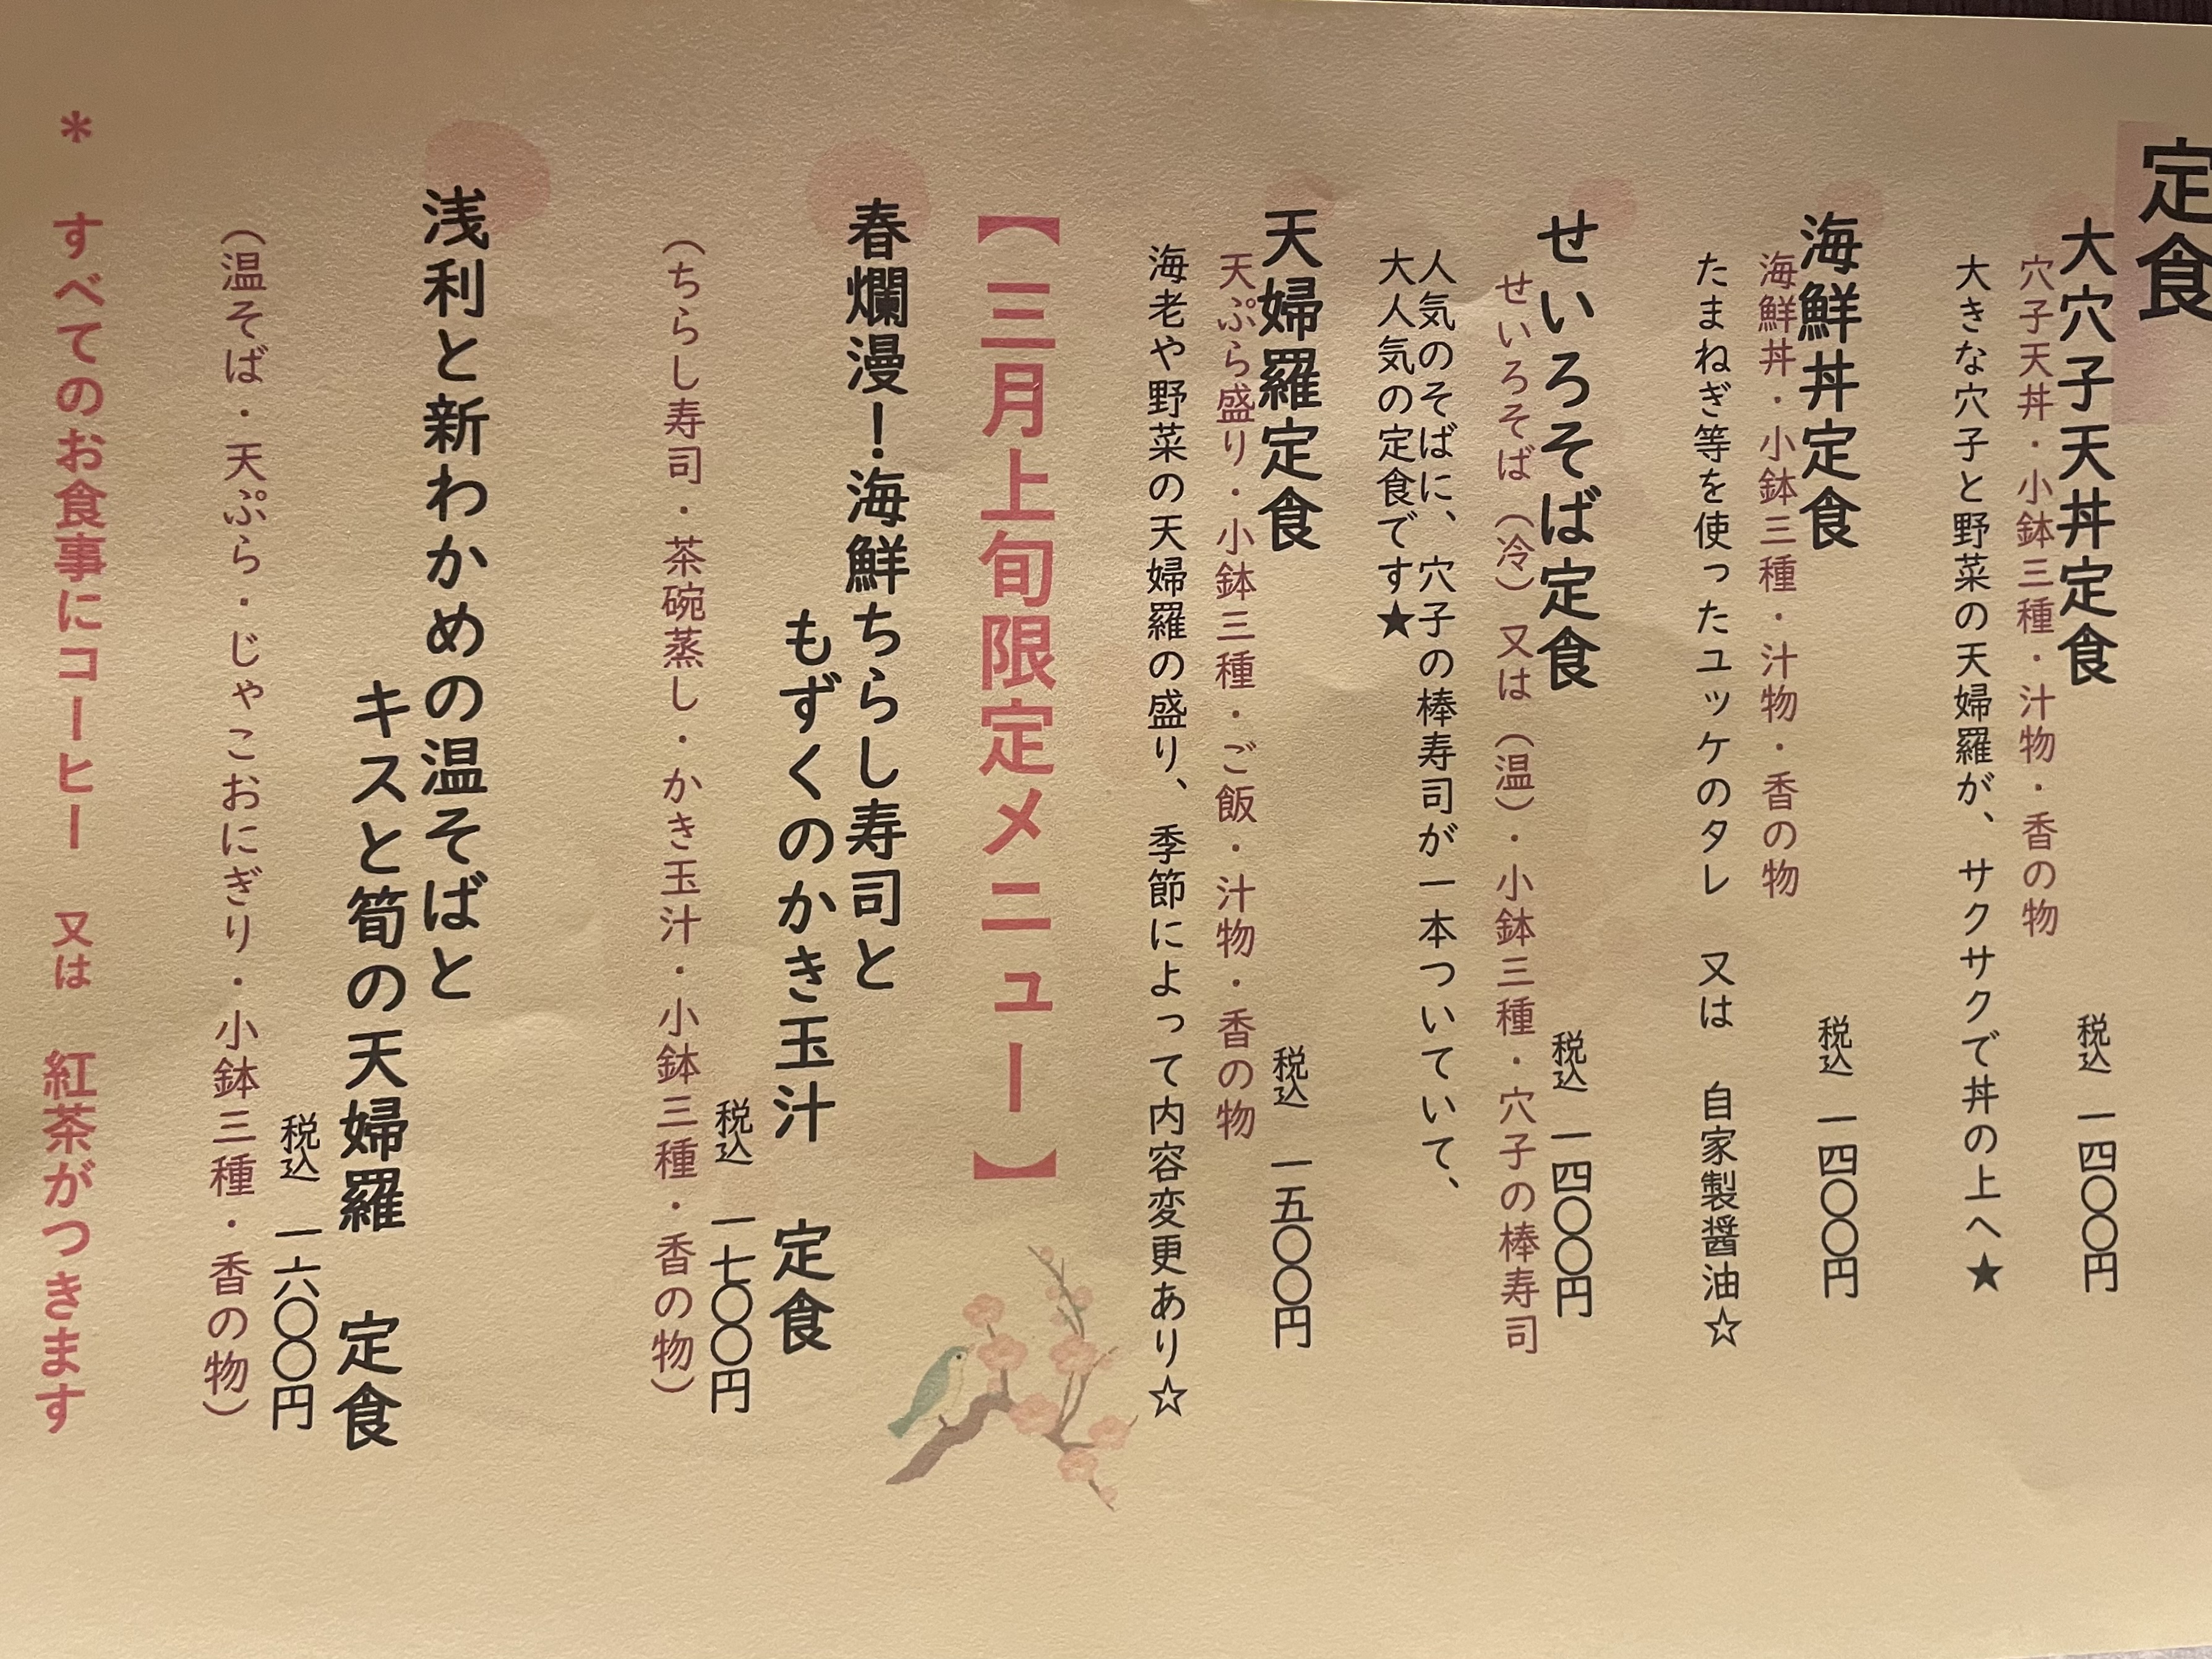 定食
大穴子天丼定食　税込　一四〇〇円
穴子天丼・小鉢三種・汁物・香の物
大きな穴子と野菜の天婦羅が、サクサクで丼の上へ★
海鮮丼定食　税込　一四〇〇円
海鮮丼・小鉢三種・汁物・香の物
たまねぎ等を使ったユッケのタレ　又は　自家製醤油☆
せいろそば定食　税込　一四〇〇円
せいろそば（冷）又は（温）・小鉢三種・穴子の棒寿司
人気のそばに、穴子の棒寿司が一本ついていて、
大人気の定食です★
天婦羅定食　税込　一五〇〇円
天ぷら盛り・小鉢三種・ご飯・汁物・香の物
海老や野菜の天婦羅の盛り、季節によって内容変更あり☆
【三月上旬限定メニュー】
春爛漫！海鮮ちらし寿司と
もずくのかき玉汁　定食
税込　一七〇〇円
（ちらし寿司・茶碗蒸し・かき玉汁・小鉢三種・香の物）
浅利と新わかめの温そばと
キスと筍の天婦羅　定食
税込　一六〇〇円
（温そば・天ぷら・じゃこおにぎり・小鉢三種・香の物）
＊　すべてのお食事にコーヒー　又は　紅茶がつきます